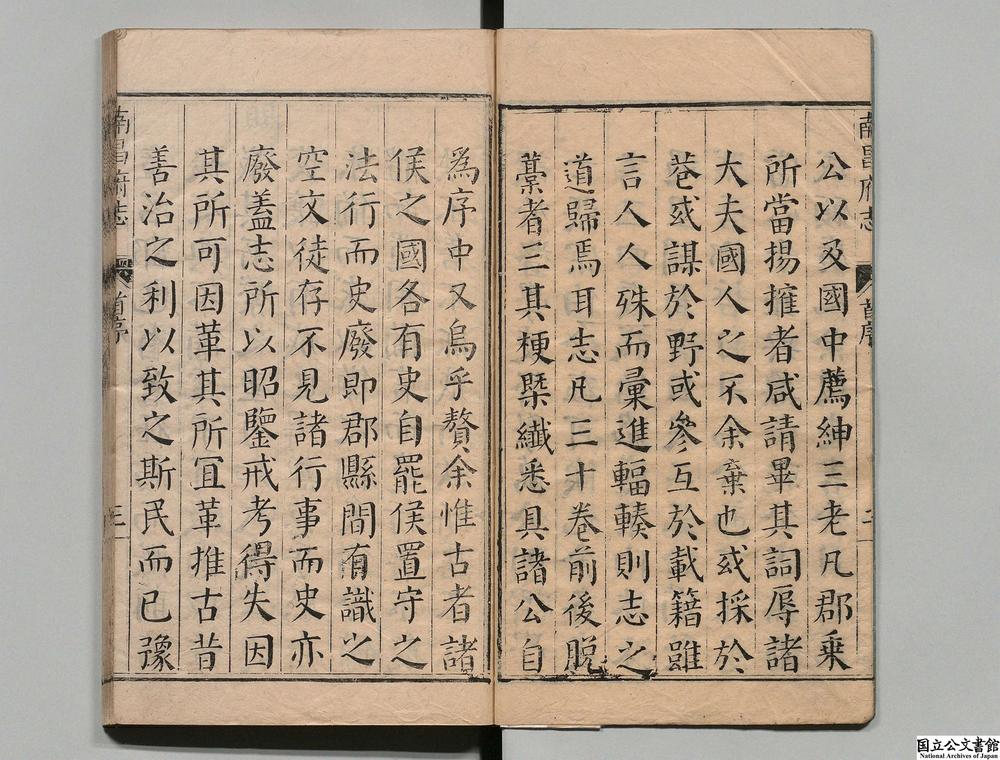 南昌府志
首序
二
公以及國中薦紳三老凡郡乗
所當揚搉者咸請畢其詞辱諸
大夫國人之不余棄也或採於
巷或謀於野或參互於載籍雖
言人人殊而彙進輻輳則志之
道歸焉耳志凡三十卷前後脫
藁者三其梗槩纖悉具諸公自
爲序中又烏乎贅余惟古者諸
侯之國各有史自罷侯置守之
法行而史廢即郡縣間有識之
空文徒存不見諸行事而史亦
廢蓋志所以昭鑒戒考得失因
其所可因革其所冝革推古昔
善治之利以致之斯民而已豫
南昌府志
首序
三
国立公文書館
National Archives of Japan